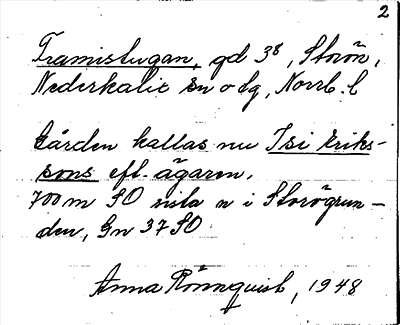 2
Framistugan, gd 3⁸, Storön,
Nederkalix sn o tg, Norrb. l
Gården kallas nu Isi Eriks-
sons eft. ägaren.
700 m SO sista n i Storögrun-
den, Gn 37 SO
Anna Rönnquist, 1948